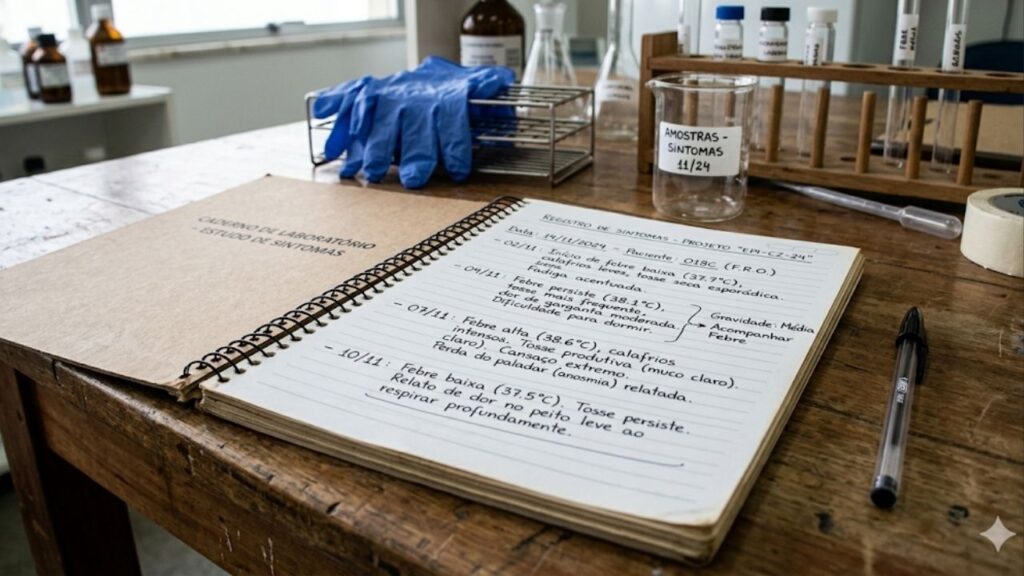 CADERNO DE LABORATÓRIO
- ESTUDO DE SINTOMAS
REGISTRO DE SINTOMAS - PROJETO "EPI-CZ-24"
Data: 14/11/2024 - Paciente: 01BC (F.R.O.)
- 02/11: Início de febre baixa (37.7°C),
calafrios leves, tosse seca esporádica.
Fadiga acentuada.
- 04/11: Febre persiste (38.1°C),
tosse mais frequente,
dor de garganta moderada
Dificuldade para dormir.
Gravidade: Média
Acompanhar
Febre
- 07/11: Febre alta (38.6°C), calafrios
intensos. Tosse produtiva (muco claro).
claro). Cansaço extremo.
Perda do paladar (anosmia) relatada.
- 10/11: Febre baixa (37.5°C). Tosse persiste.
Relato de dor no peito leve ao
respirar profundamente.
AMOSTRAS -
SINTOMAS
11/24